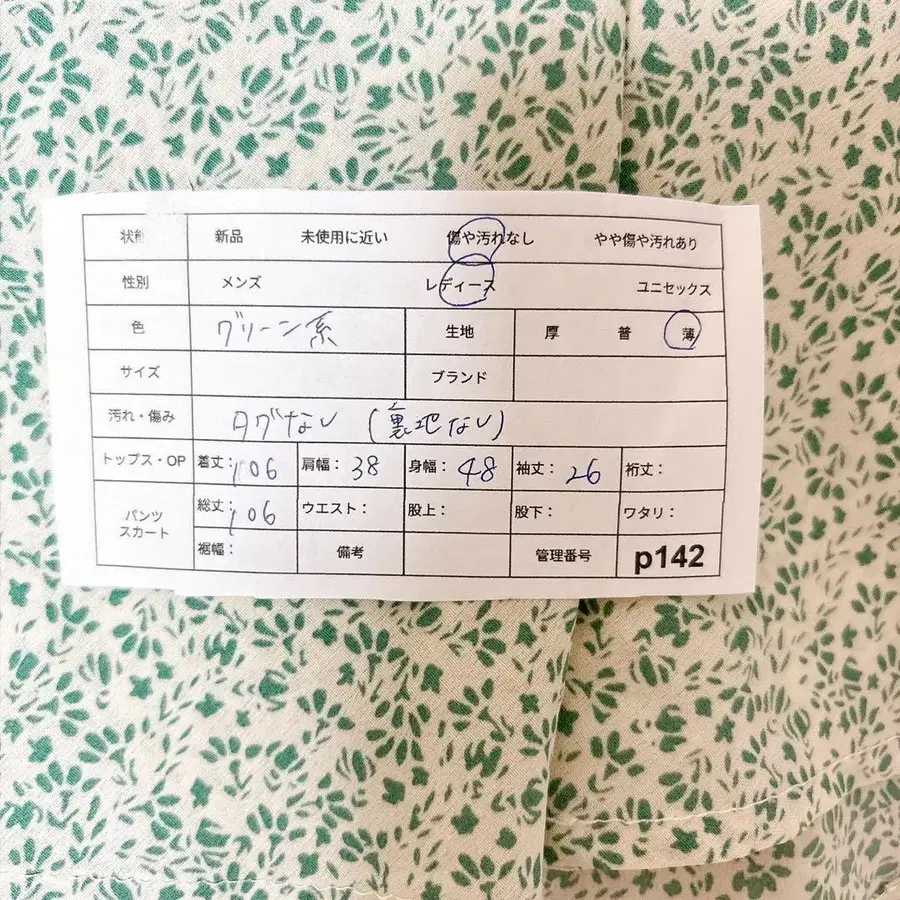 状態 新品 未使用に近い 傷や汚れなし やや傷や汚れあり
性別 メンズ レディース ユニセックス
色 グリーン系 生地 厚 普 薄
サイズ ブランド
汚れ・傷み タグない (裏地ない)
トップス・OP 着丈:106 肩幅:38 身幅:48 袖丈:26 裄丈:
パンツ スカート 総丈:106 ウエスト: 股上: 股下: ワタリ:
裾幅: 備考 管理番号 p142